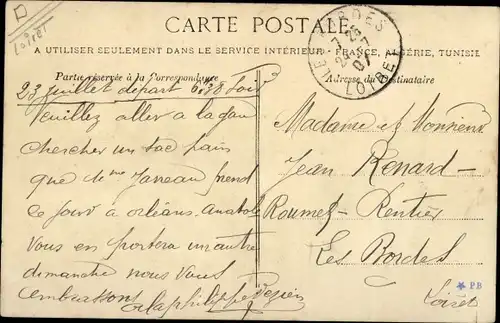 CARTE POSTALE
A UTILISER SEULEMENT DANS LE SERVICE INTÉRIEUR - FRANCE, ALGÉRIE, TUNISIE
Loiret
LES BORDES
LOIRET
07
Partie réservée à la Correspondance
Adresse du Destinataire
23 juillet départ 6h38 Soir
Veuillez aller a la gare
chercher un sac pain
que de Mme Javeau prend
ce Soir à orléans. Anatole
Vous en portera un autre
dimanche nous Vous
embrassons
Madame et Monsieur
Jean Renard-
Roumet- Rentier
Les Bordes
Loiret
PB